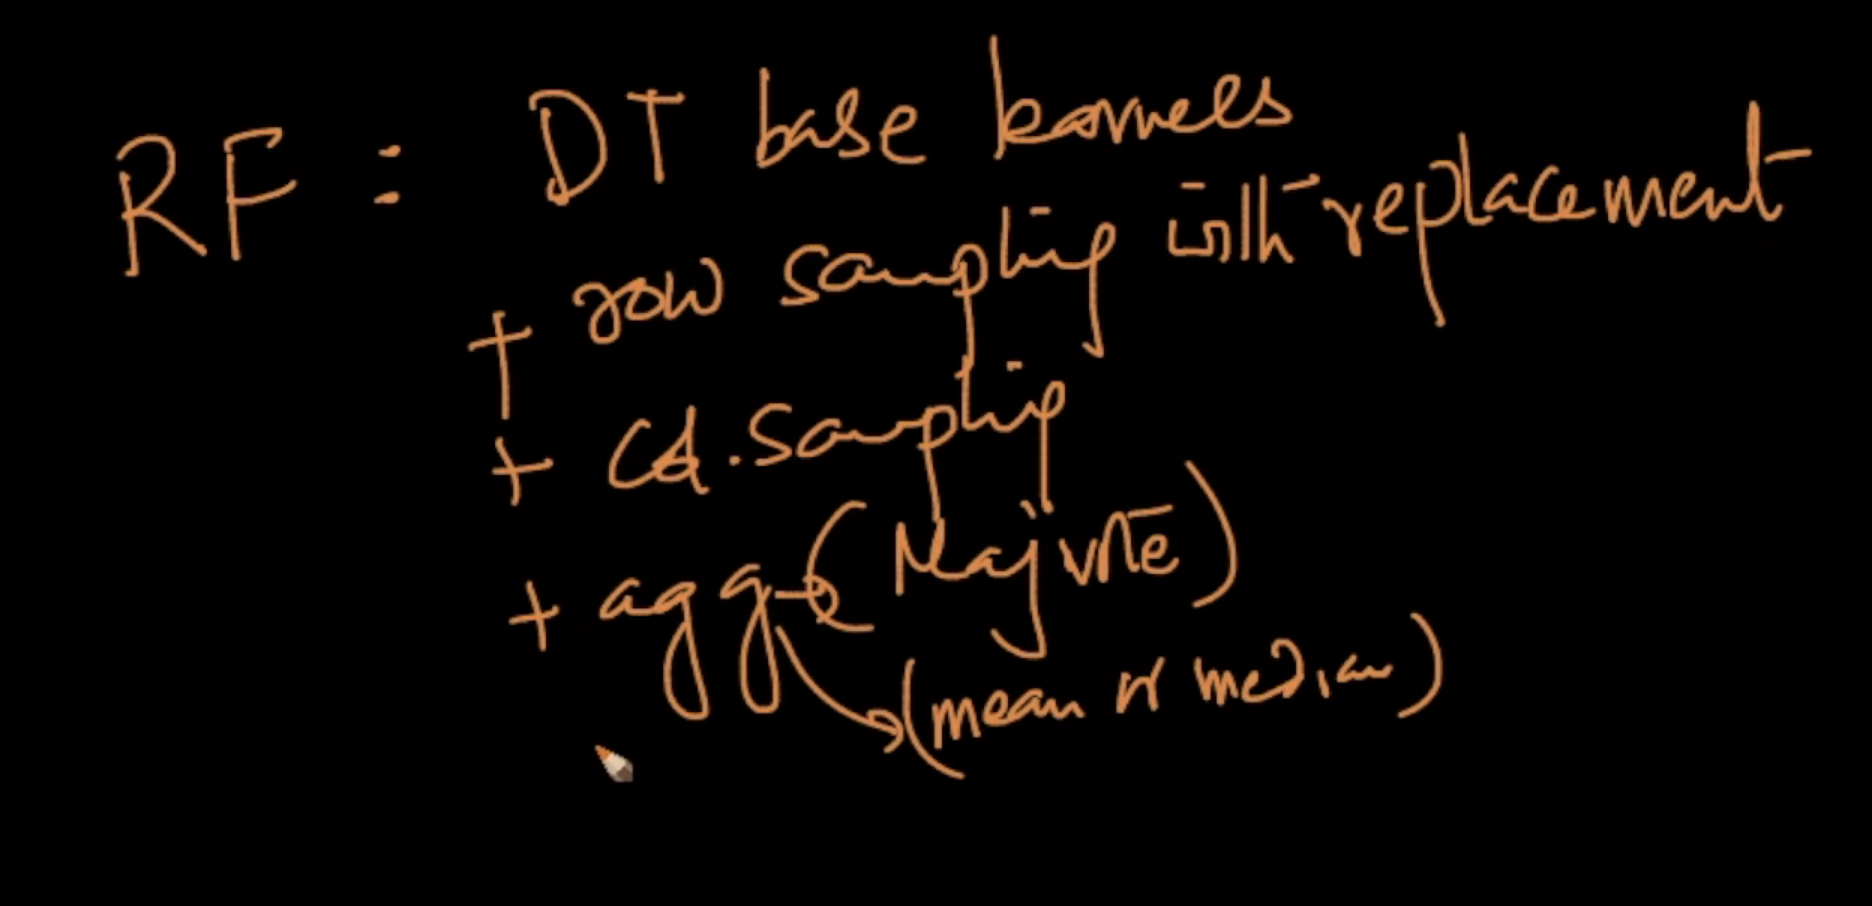 RF : DT base learners
+ row sampling with replacement
+ Col. sampling
+ agg → (Maj vote)
→ (mean or median)